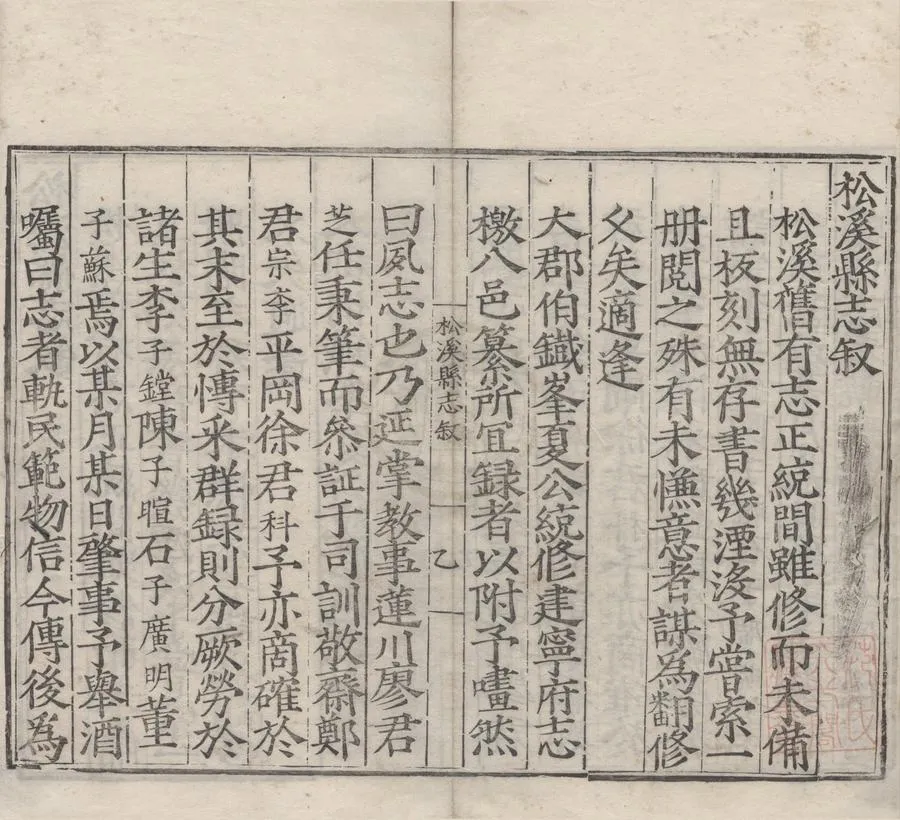 松溪縣志叙
松溪舊有志正統間雖修而未備
且板刻無存書幾湮没予嘗索一
册閱之殊有未慊意者謀為翻修
久矣適逢
大郡伯鐵峯夏公統修建寧府志
檄八邑纂所冝録者以附予嘻然
松溪縣志叙
乙
曰夙志也乃延掌教事蓮川廖君
芝任秉筆而叅証于司訓敬齋鄭
君宗李平岡徐君科予亦啇確於
其末至於慱采群録則分厥勞於
諸生李子鏜陳子暄石子廣明董
子蘇焉以某月某日肇事予舉酒
囑曰志者軌民範物信今傳後為